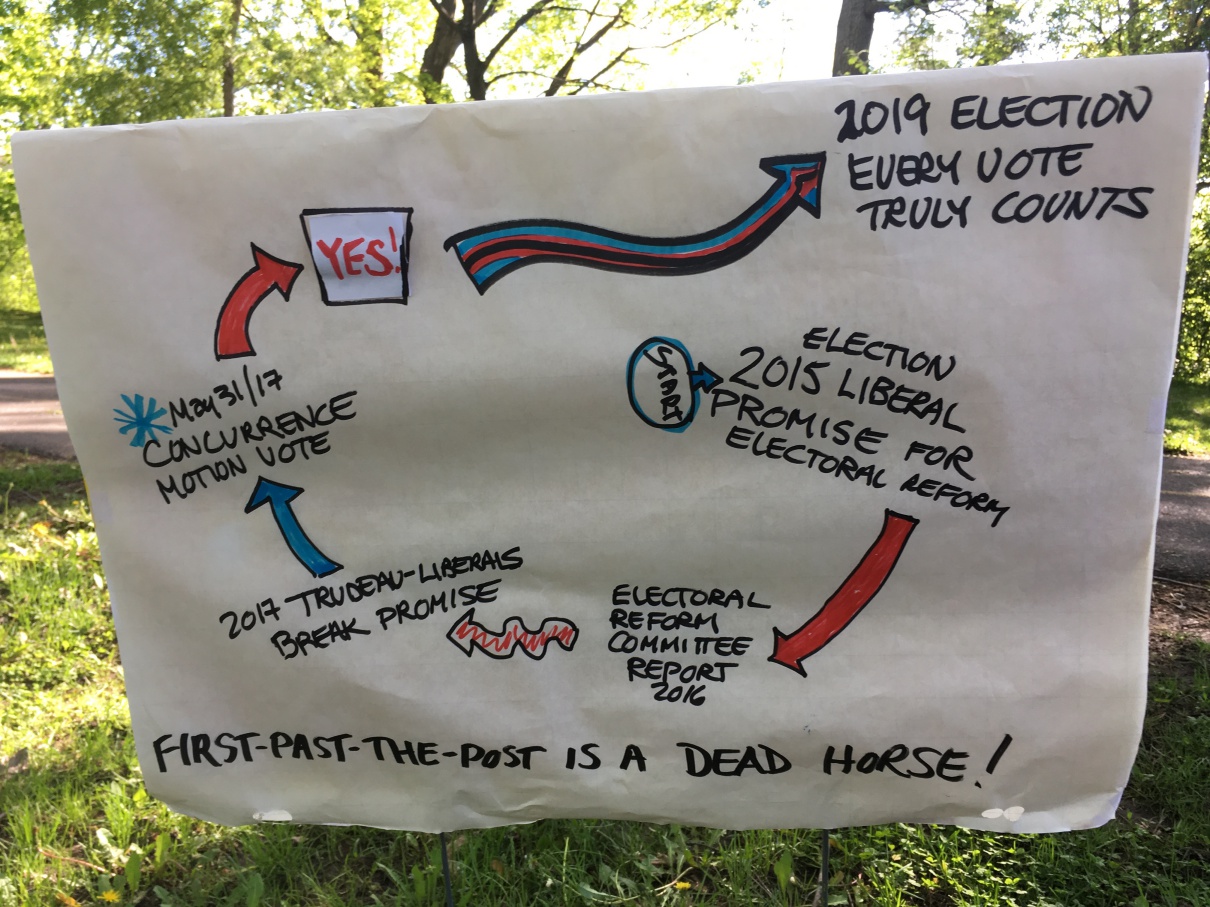 2019 ELECTION
EVERY VOTE
TRULY COUNTS
YES!
START
ELECTION
2015 LIBERAL
PROMISE FOR
ELECTORAL REFORM
ELECTORAL
REFORM
COMMITTEE
REPORT
2016
2017 TRUDEAU-LIBERALS
BREAK PROMISE
May 31/17
CONCURRENCE
MOTION VOTE
FIRST-PAST-THE-POST IS A DEAD HORSE!